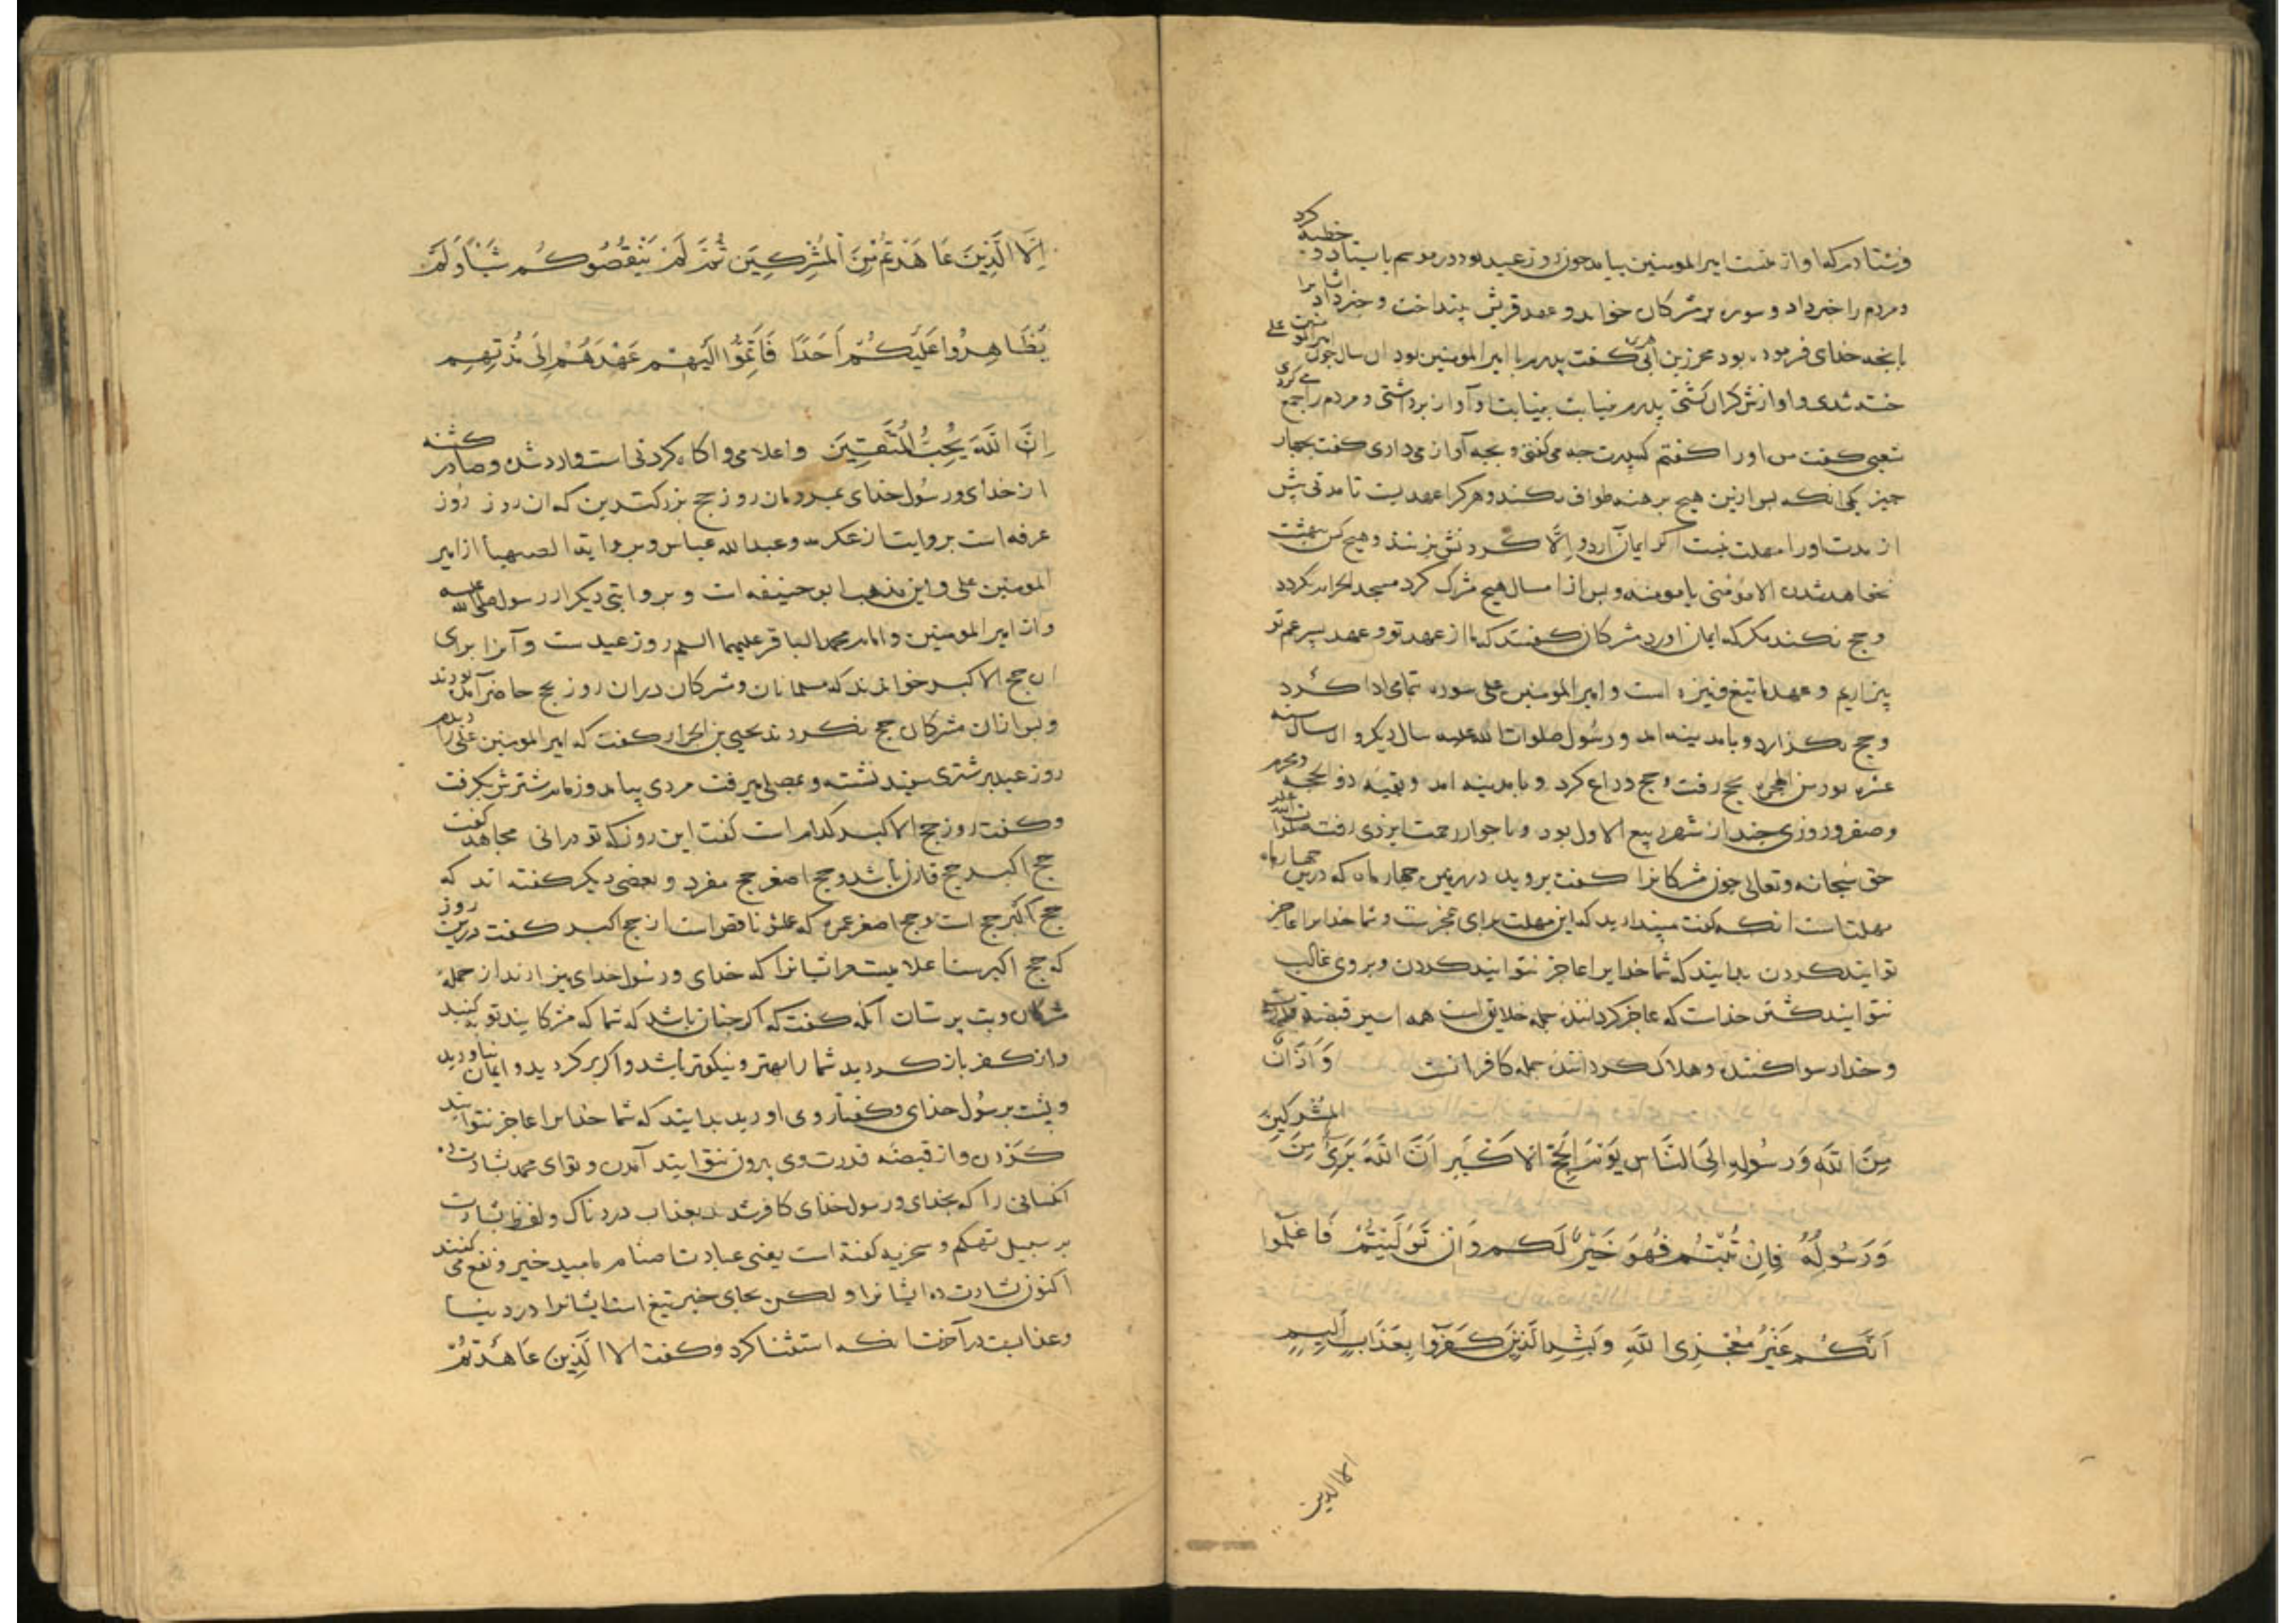 خطبه کرد
فرستادم که او از منست امیر المومنین بیامد جون روز عید بود در موسم بایستاد و
ومردم را خبر داد و سوره بر مشرکان خواند و عهد قریش بینداخت و خبر داد ایشانرا
بانجه خدای فرموده بود محرز بن ابی کفت پدرم با امیر المومنین بود ان سال جون امیر المومنین علی
خسته شدی و اوازش کران کشتی پدرم و آواز برداشتی و مردم را جمع می کردی
شعبی کفت من اورا کفتم کبدرت جه می کفتی و بجه آواز می داری کفت بجهار
جیز یکی انکه بس ازین هیج برهنه طواف نکند و هر کرا عهدیست تا مدتی بیش
از مدت او را مهلت نیست اکر ایمان آرد و الا کردنش بزنند و هیج کس ببهشت
نخواهد شدن الا مومنی یا مومنه و بس از امسال هیج مشرک کرد مسجد الحرام نکردد
و حج نکند مکر که ایمان اورد مشرکان کفتند که ما از عهد تو و عهد بسر عم تو
بیزاریم و عهد ما تیغ و نیزه است و امیر المومنین علی سوره تمامی ادا کرد
و حج بکزارد و بامدینه امد و رسول صلوات الله علیه سال دیکر و ان سال سنه
عشره بود من الهجره بحج رفت و حج وداع کرد و بامدینه امد و بقیه ذوالحجه و محرم
و صفر و روزی جند از شهر ربیع الاول بود و با جوار رحمت ایزدی رفت صلوات الله علیه
حق سبحانه و تعالی جون مشرکانرا کفت بروید در زمین جهار ماه که درین جهار ماه
مهلتست انکه کفت مبندارید که این مهلت برای عجزست و شما خدایرا عاجز
توانید کردن بدانید که شما خدایرا عاجز نتوانید کردن و بر وی غالب
نتوانید کشتن خداست که عاجز کرداننده جمله خلایق است همه اسیر قبضه قدرت
و خدا رسوا کننده و هلاک کرداننده جمله کافرانست وَاَذَانٌ
مِنَ اللّهِ وَرَسُولِهِ اِلَی النَّاسِ یَوْمَ الْحَجِّ الْاَکْبَرِ اَنَّ اللّهَ بَرِیءٌ مِنَ الْمُشْرِکِینَ
وَرَسُولُهُ فَاِنْ تُبْتُمْ فَهُوَ خَیْرٌ لَکُمْ وَاِنْ تَوَلَّیْتُمْ فَاعْلَمُوا
اَنَّکُمْ غَیْرُ مُعْجِزِی اللّهِ وَبَشِّرِ الَّذِینَ کَفَرُوا بِعَذَابٍ اَلِیمٍ
الا الذین
اِلَّا الَّذِینَ عَاهَدْتُمْ مِنَ الْمُشْرِکِینَ ثُمَّ لَمْ یَنْقُصُوکُمْ شَیْئًا وَلَمْ
یُظَاهِرُوا عَلَیْکُمْ اَحَدًا فَاَتِمُّوا اِلَیْهِمْ عَهْدَهُمْ اِلَی مُدَّتِهِمْ
اِنَّ اللّهَ یُحِبُّ الْمُتَّقِینَ و اعلامی و اکاه کردنی است وارد شده و صادر کشته
از خدای و رسول خدای بمردمان روز حج بزرکترین که ان روز روز
عرفه است بروایت از عکرمه و عبد الله عباس و بروایت ابو الصهبا از امیر
المومنین علی و این مذهب ابو حنیفه است و بروایتی دیکر از رسول صلی الله علیه
و از امیر المومنین و امام محمد الباقر علیهما السلم روز عیدست و آنرا برای
ان حج الاکبر خوانند که مسلمانان و مشرکان در ان روز بحج حاضر آمده بودند
و بس ازان مشرکان حج نکردند یحیی بن الجزار کفت که امیر المومنین علی را دیدم
روز عید بر شتری سبید نشسته و بمصلی میرفت مردی بیامد و زمام شترش بکرفت
و کفت روز حج الاکبر کدام است کفت این روز که تو درانی مجاهد کفت
حج اکبر حج قارن باشد و حج اصغر حج مفرد و بعضی دیکر کفته اند که
حج اکبر حج است و حج اصغر عمره که عملش ناقص است از حج اکبر کفت درین روز
که حج اکبرست اعلامیست مر ایشانرا که خدای و رسول خدای بیزارند از جمله
مشرکان و بت برستان آنکه کفت که اکر جنان باشد که شما که مشرکانید توبه کنید
و از کفر باز کردید شما را بهتر و نیکوتر باشد و اکر برکردید و ایمان نیاورید
و بشت بر رسول خدای و کفتار وی اورید بدانید که شما خدایرا عاجز نتوانید
کردن و از قبضه قدرت وی بیرون نتوانید آمدن و تو ای محمد بشارت ده
انکسانی را که بخدای و رسول خدای کافر شدند بعذاب دردناک و لفظ بشارت
بر سبیل تهکم و سخریه کفته است یعنی عبادت اصنام بامید خیر و نفع می کنند
اکنون بشارت ده ایشانرا و لکن بجای خیر تیغ است ایشانرا در دنیا
و عذابیست در آخرت انکه استثنا کرد و کفت الا الَّذِینَ عَاهَدْتُمْ